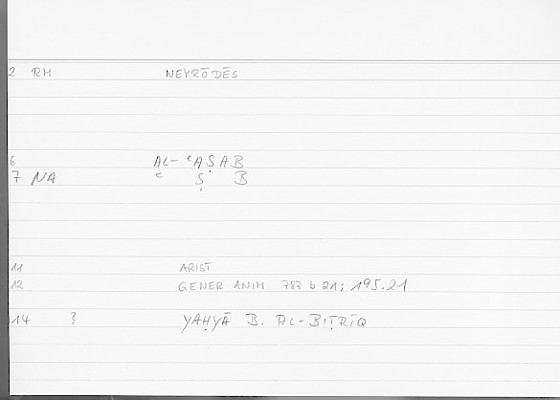 2 RM NEYRŌDĒS
6 AL-ʿAṢAB
7 NA ʿ Ṣ B
11 ARIST
12 GENER ANIM 787 b 21; 195.21
14 ? YAḤYĀ B. AL-BIṬRĪQ